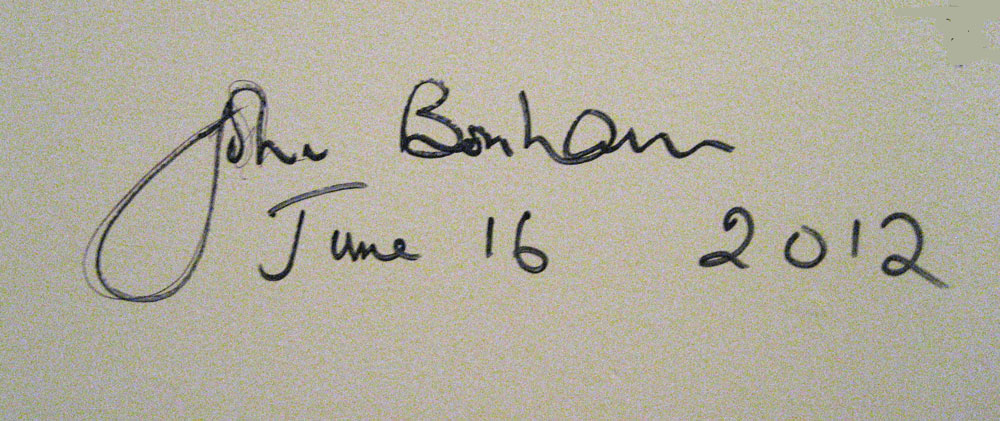 John Bonham
June 16 2012